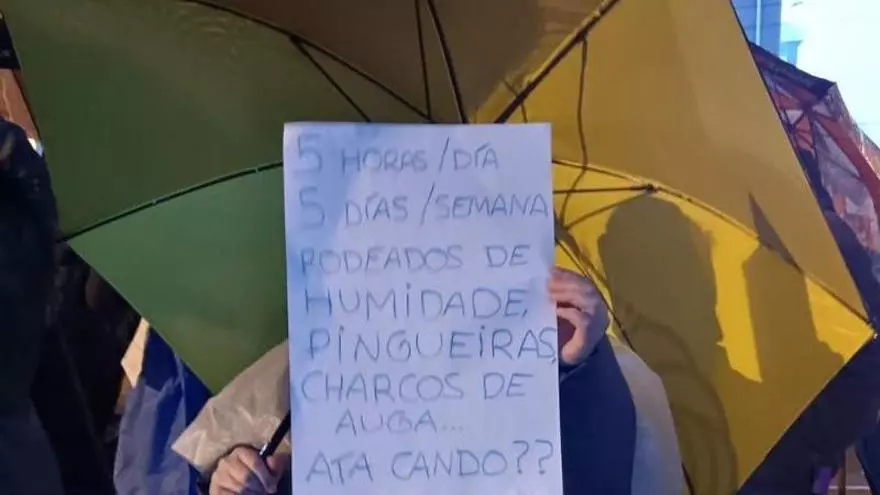 5 HORAS/DÍA
5 DÍAS/SEMANA
RODEADOS DE
HUMIDADE,
PINGUEIRAS,
CHARCOS DE
AUGA...
ATA CANDO??